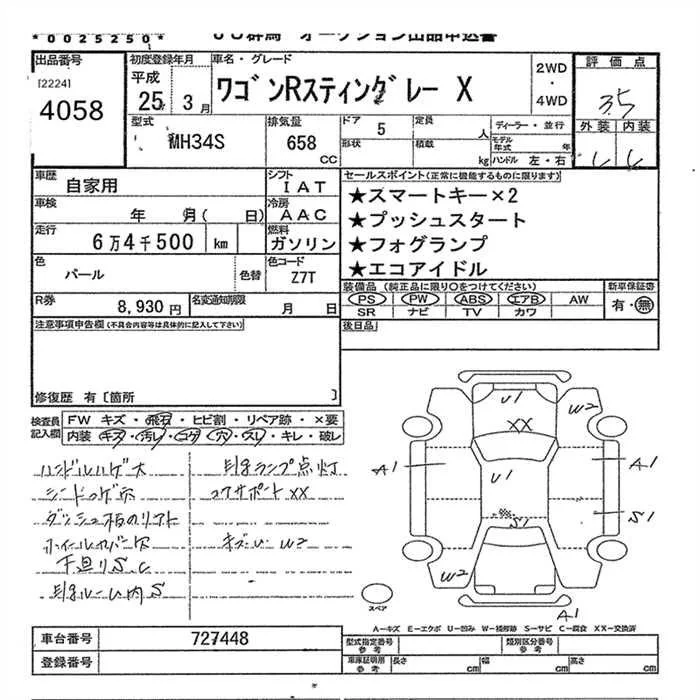 *0025250*
JU群馬 オークション出品申込書
出品番号
[2224]
4058
初度登録年月
平成
25年 3月
車名・グレード
ワゴンRスティングレー X
2WD
・
4WD
評価点
3.5
外装 内装
型式
MH34S
排気量
658
CC
ドア
5
定員
人
形状
積載
kg
ディーラー・並行
モデル年式 年
ハンドル 左・右
車歴
自家用
シフト
IAT
車検
年 月( 日)
冷房
AAC
走行
6万4千500 km
燃料
ガソリン
色
パール
色替
色コード
Z7T
R券
8,930円
名変通知期限
月 日
セールスポイント(正常に機能するものに限ります)
★スマートキー×2
★プッシュスタート
★フォグランプ
★エコアイドル
装備品(純正品に限り○をつけてください)
PS PW ABS エアB AW
SR ナビ TV カワ
新車保証書
有・無
後日品
注意事項申告欄(不具合内容等は具体的に記入して下さい)
修復歴 有[箇所 ]
検査員
記入欄
FW キズ・飛石・ヒビ割・リペア跡・×要
内装 キズ・汚レ・コゲ・穴・スレ・キレ・破レ
ハンドルハゲ大
シートコゲ穴
ホイールカバー欠
下廻りS C
ルーム内S
ランプ点灯
コアサポートXX
キズU W2
U1
W2
XX
A1
U1
A1
S1
S1
W2
A1
スペア
A-キズ E-エクボ U-凹み W-補修跡 S-サビ C-腐食 XX-交換済
車台番号
727448
登録番号
型式指定番号
参考
類別区分番号
参考
車庫証明用
参考
長さ cm
幅 cm
高さ cm